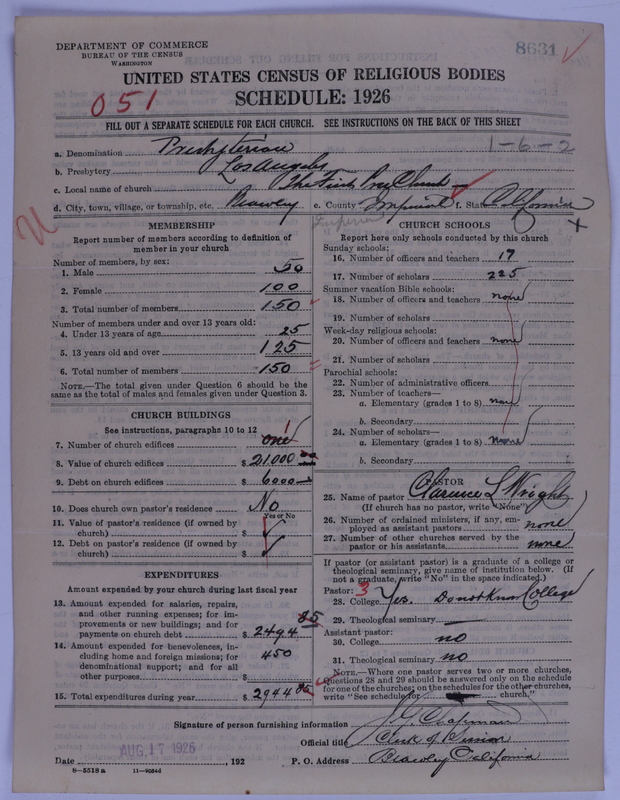 DEPARTMENT OF COMMERCE
BUREAU OF THE CENSUS
WASHINGTON
8631
UNITED STATES CENSUS OF RELIGIOUS BODIES
051
SCHEDULE: 1926
FILL OUT A SEPARATE SCHEDULE FOR EACH CHURCH. SEE INSTRUCTIONS ON THE BACK OF THIS SHEET
1-6-2
a. Denomination Presbyterian
b. Presbytery Los Angeles
c. Local name of church The First Pres Church
d. City, town, village, or township, etc. Brawley e. County Imperial f. State California
Imperial
MEMBERSHIP
Report number of members according to definition of
member in your church
Number of members, by sex:
1. Male 50
2. Female 100
3. Total number of members 150
Number of members under and over 13 years old:
4. Under 13 years of age 25
5. 13 years old and over 125
6. Total number of members 150
NOTE.—The total given under Question 6 should be the
same as the total of males and females given under Question 3.
CHURCH BUILDINGS
See instructions, paragraphs 10 to 12
7. Number of church edifices one 1
8. Value of church edifices $ 21000
9. Debt on church edifices $ 6000
10. Does church own pastor's residence No
Yes or No
11. Value of pastor's residence (if owned by
church) $
12. Debt on pastor's residence (if owned by
church) $
EXPENDITURES
Amount expended by your church during last fiscal year
13. Amount expended for salaries, repairs,
and other running expenses; for im-
provements or new buildings; and for
payments on church debt $ 2494 85
14. Amount expended for benevolences, in-
cluding home and foreign missions; for
denominational support; and for all
other purposes $ 450
15. Total expenditures during year $ 2944 85
CHURCH SCHOOLS
Report here only schools conducted by this church
Sunday schools:
16. Number of officers and teachers 17
17. Number of scholars 225
Summer vacation Bible schools:
18. Number of officers and teachers none
19. Number of scholars
Week-day religious schools:
20. Number of officers and teachers none
21. Number of scholars
Parochial schools:
22. Number of administrative officers
23. Number of teachers—
a. Elementary (grades 1 to 8) none
b. Secondary
24. Number of scholars—
a. Elementary (grades 1 to 8) none
b. Secondary
PASTOR
25. Name of pastor Clarence L Wright
(If church has no pastor, write "None")
26. Number of ordained ministers, if any, em-
ployed as assistant pastors none
27. Number of other churches served by the
pastor or his assistants none
If pastor (or assistant pastor) is a graduate of a college or
theological seminary, give name of institution below. (If
not a graduate, write "No" in the space indicated.)
Pastor: 3
28. College Yes. Do not Know College
29. Theological seminary
Assistant pastor:
30. College no
31. Theological seminary no
NOTE.—Where one pastor serves two or more churches,
Questions 28 and 29 should be answered only on the schedule
for one of the churches; on the schedules for the other churches,
write "See schedule for church."
Signature of person furnishing information J. G. Chapman
Official title Clerk of Session
AUG 17 1926
Date , 192 P. O. Address Brawley California
8-5518 a 11-9084d